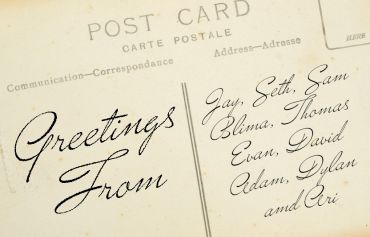 POST CARD
CARTE POSTALE
Communication—Correspondance
Address—Adresse
HERE
Greetings
From
Jay, Seth, Sam
Blima, Thomas
Evan, David
Adam, Dylan
amd Ari